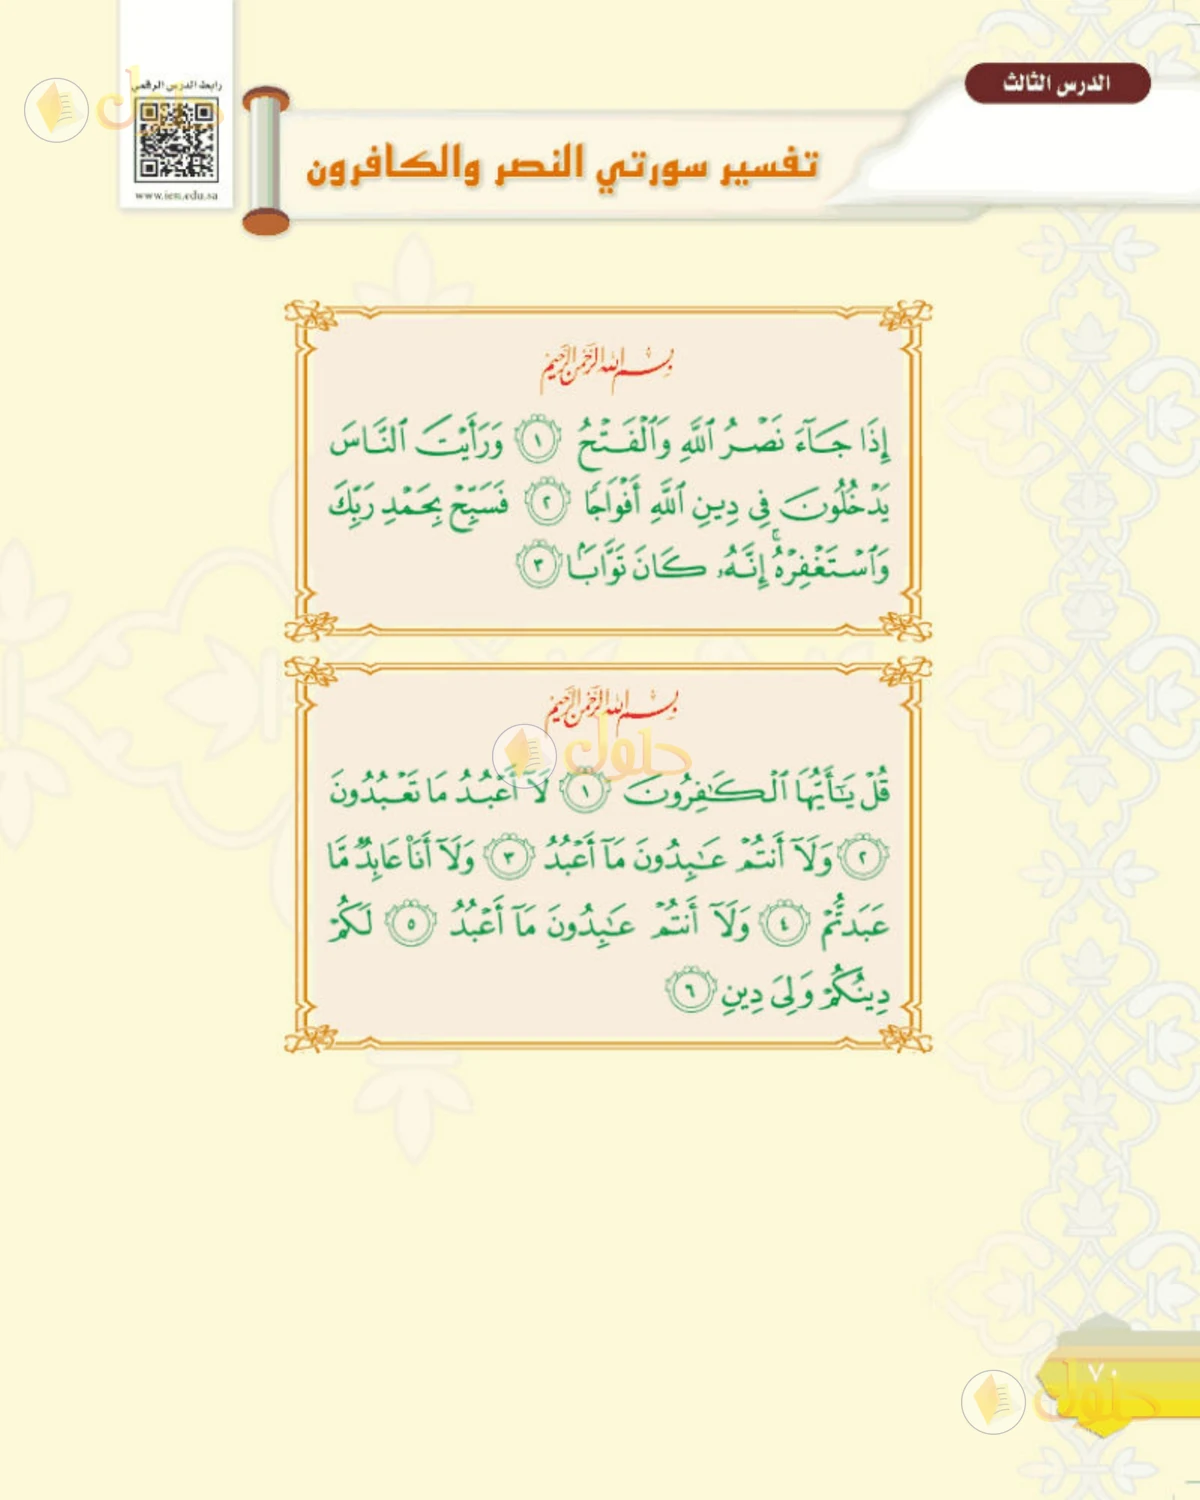 الدرس الثالث
رابط الدرس الرقمي
www.ien.edu.sa
حلول
تفسير سورتي النصر والكافرون
بِسْمِ اللَّهِ الرَّحْمَٰنِ الرَّحِيمِ
إِذَا جَآءَ نَصْرُ ٱللَّهِ وَٱلْفَتْحُ ١ وَرَأَيْتَ ٱلنَّاسَ
يَدْخُلُونَ فِي دِينِ ٱللَّهِ أَفْوَاجًا ٢ فَسَبِّحْ بِحَمْدِ رَبِّكَ
وَٱسْتَغْفِرْهُ ۚ إِنَّهُۥ كَانَ تَوَّابًۢا ٣
بِسْمِ اللَّهِ الرَّحْمَٰنِ الرَّحِيمِ
حلول
قُلْ يَٰٓأَيُّهَا ٱلْكَٰفِرُونَ ١ لَآ أَعْبُدُ مَا تَعْبُدُونَ
٢ وَلَآ أَنتُمْ عَٰبِدُونَ مَآ أَعْبُدُ ٣ وَلَآ أَنَا۠ عَابِدٌ مَّا
عَبَدتُّمْ ٤ وَلَآ أَنتُمْ عَٰبِدُونَ مَآ أَعْبُدُ ٥ لَكُمْ
دِينُكُمْ وَلِىَ دِينِ ٦
٧٠
حلول